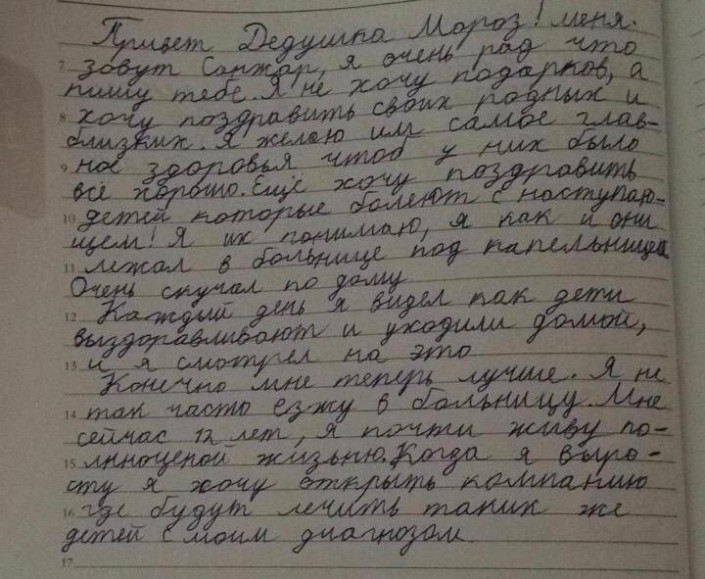 Привет Дедушка Мороз! меня.
7 зовут Санжар, я очень рад что
пишу тебе. Я не хочу подарков, а
8 хочу поздравить своих родных и
близких. Я желаю им самое глав-
9 ное здоровья чтоб у них было
всё хорошо. Ещё хочу поздравить
10 детей которые болеют с наступаю-
щем! Я их понимаю, я как и они
11 лежал в больнице под капельницей
Очень скучал по дому
12 Каждый день я видел как дети
выздоравливают и уходили домой,
13 и я смотрел на это
Конечно мне теперь лучше. Я не
14 так часто езжу в больницу. Мне
сейчас 12 лет, я почти живу по-
15 лноценой жизнью. Когда я выро-
сту я хочу открыть компанию
16 где будут лечить таких же
детей с моим диагнозом.
17